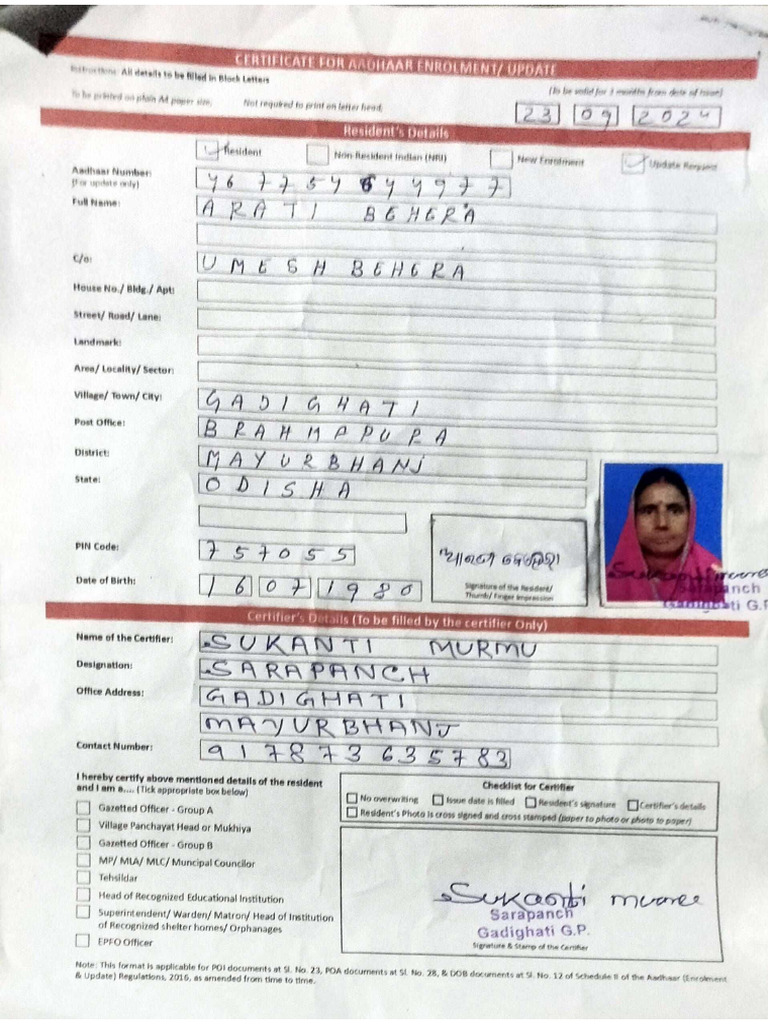 CERTIFICATE FOR AADHAAR ENROLMENT/ UPDATE
Instructions: All details to be filled in Block Letters
(To be valid for 3 months from date of issue)
To be printed on plain A4 paper size. Not required to print on letter head.
23 09 2024
Resident's Details
Resident Non-Resident Indian (NRI) New Enrolment Update Request
Aadhaar Number: 467754644977
(For update only)
Full Name: ARATI BEHERA
C/o: UMESH BEHERA
House No./ Bldg./ Apt:
Street/ Road/ Lane:
Landmark:
Area/ Locality/ Sector:
Village/ Town/ City: GADIGHATI
Post Office: BRAHMAPURA
District: MAYURBHANJ
State: ODISHA
PIN Code: 757055
Signature of the Resident/
Thumb/ Finger Impression
Sarapanch
Gadighati G.P.
Date of Birth: 16 07 1980
Certifier's Details (To be filled by the certifier Only)
Name of the Certifier: SUKANTI MURMU
Designation: SARAPANCH
Office Address: GADIGHATI
MAYURBHANJ
Contact Number: 917873635783
I hereby certify above mentioned details of the resident
and I am a.... (Tick appropriate box below)
Gazetted Officer - Group A
Village Panchayat Head or Mukhiya
Gazetted Officer - Group B
MP/ MLA/ MLC/ Muncipal Councilor
Tehsildar
Head of Recognized Educational Institution
Superintendent/ Warden/ Matron/ Head of Institution
of Recognized shelter homes/ Orphanages
EPFO Officer
Checklist for Certifier
No overwriting Issue date is filled Resident's signature Certifier's details
Resident's Photo is cross signed and cross stamped (paper to photo or photo to paper)
Sukanti
Sarapanch
Gadighati G.P.
Signature & Stamp of the Certifier
Note: This format is applicable for POI documents at Sl. No. 23, POA documents at Sl. No. 28, & DOB documents at Sl. No. 12 of Schedule II of the Aadhaar (Enrolment
& Update) Regulations, 2016, as amended from time to time.